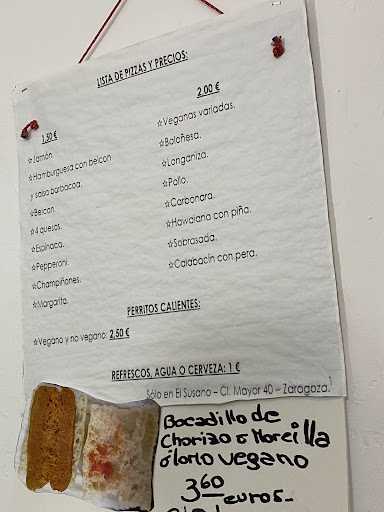 LISTA DE PIZZAS Y PRECIOS:
1,50 €
☆Jamón.
☆Hamburguesa con beicon
y salsa barbacoa.
☆Beicon.
☆4 quesos.
☆Espinaca.
☆Pepperoni.
☆Champiñones.
☆Margarita.
2,00 €
☆Veganas variadas.
☆Boloñesa.
☆Longaniza.
☆Pollo.
☆Carbonara.
☆Hawaiana con piña.
☆Sobrasada.
☆Calabacín con pera.
PERRITOS CALIENTES:
☆Vegano y no vegano: 2,50 €
REFRESCOS, AGUA O CERVEZA: 1 €
Sólo en El Susano – Cl. Mayor 40 – Zaragoza.
Bocadillo de
Chorizo o Morcilla
ó lomo vegano
3,60 euros-